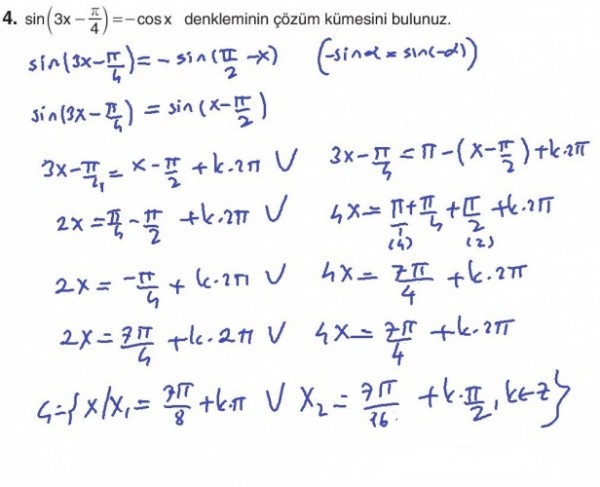 4. sin(3x − π/4) = −cosx denkleminin çözüm kümesini bulunuz.
sin(3x−π/4) = −sin(π/2 −x) (−sinα = sin(−α))
sin(3x−π/4) = sin(x−π/2)
3x−π/4 = x−π/2 +k.2π V 3x−π/4 = π−(x−π/2)+k.2π
2x = π/4 − π/2 +k.2π V 4x = π/1 + π/4 + π/2 +k.2π
(4) (2)
2x = −π/4 + k.2π V 4x = 7π/4 + k.2π
2x = 7π/4 +k.2π V 4x = 7π/4 +k.2π
Ç={x/x₁ = 7π/8 +k.π V x₂ = 7π/16 +k.π/2, k∈Z}